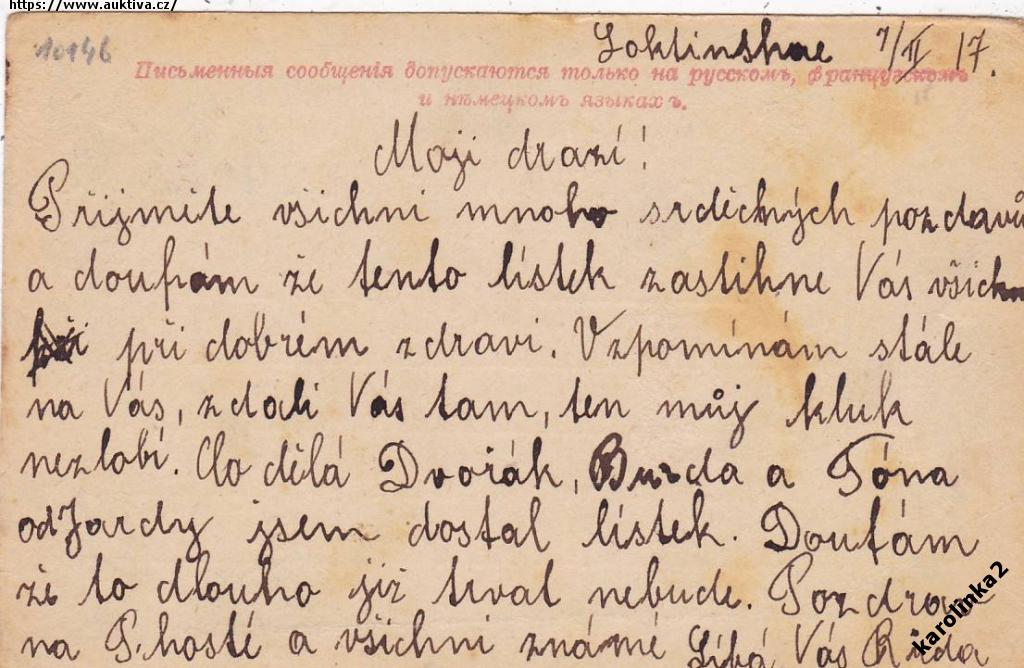 https://www.auktiva.cz/
10146
Loktinskae 7/II 17.
Письменныя сообщенія допускаются только на русскомъ, французскомъ
и нѣмецкомъ языкахъ.
Moji drazí!
Přijměte všichni mnoho srděčných pozdavů
a doufám že tento lístek zastihne Vás všichn
při dobrém zdravi. Vzpomínám stále
na Vás, zdali Vás tam, ten můj kluk
nezlobí. Co dělá Dvořák, Burda a Tóna
od Jardy jsem dostal lístek. Doufám
že to dlouho již trvat nebude. Pozdrav
na P. hosté a všichni známé Líbá Vás Rida
karolinka2